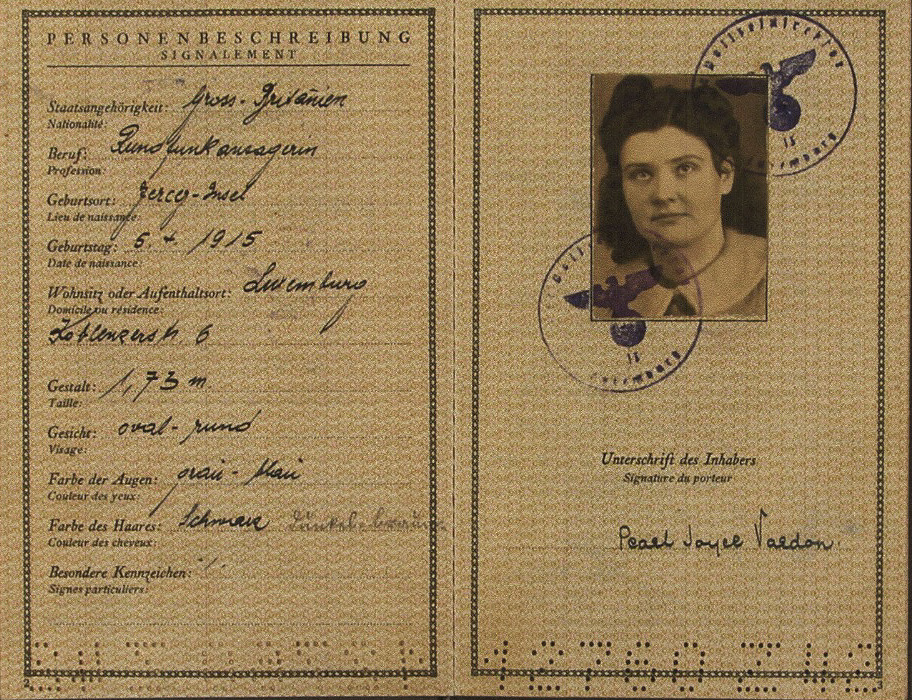 PERSONENBESCHREIBUNG
SIGNALEMENT
Staatsangehörigkeit: Gross-Britanien
Nationalité:
Beruf: Rundfunkansagerin
Profession:
Geburtsort: Jercy-Insel
Lieu de naissance:
Geburtstag: 5. 7 1915
Date de naissance:
Wohnsitz oder Aufenthaltsort: Luxemburg
Domicile ou résidence:
Koblenzerstr. 6
Gestalt: 1,73 m
Taille:
Gesicht: oval-rund
Visage:
Farbe der Augen: grau-blau
Couleur des yeux:
Farbe des Haares: Schwarz Dunkel-braun
Couleur des cheveux:
Besondere Kennzeichen: ·/.
Signes particuliers:
15
Luxemburg
15
Luxemburg
Unterschrift des Inhabers
Signature du porteur
Pearl Joyce Vardon.